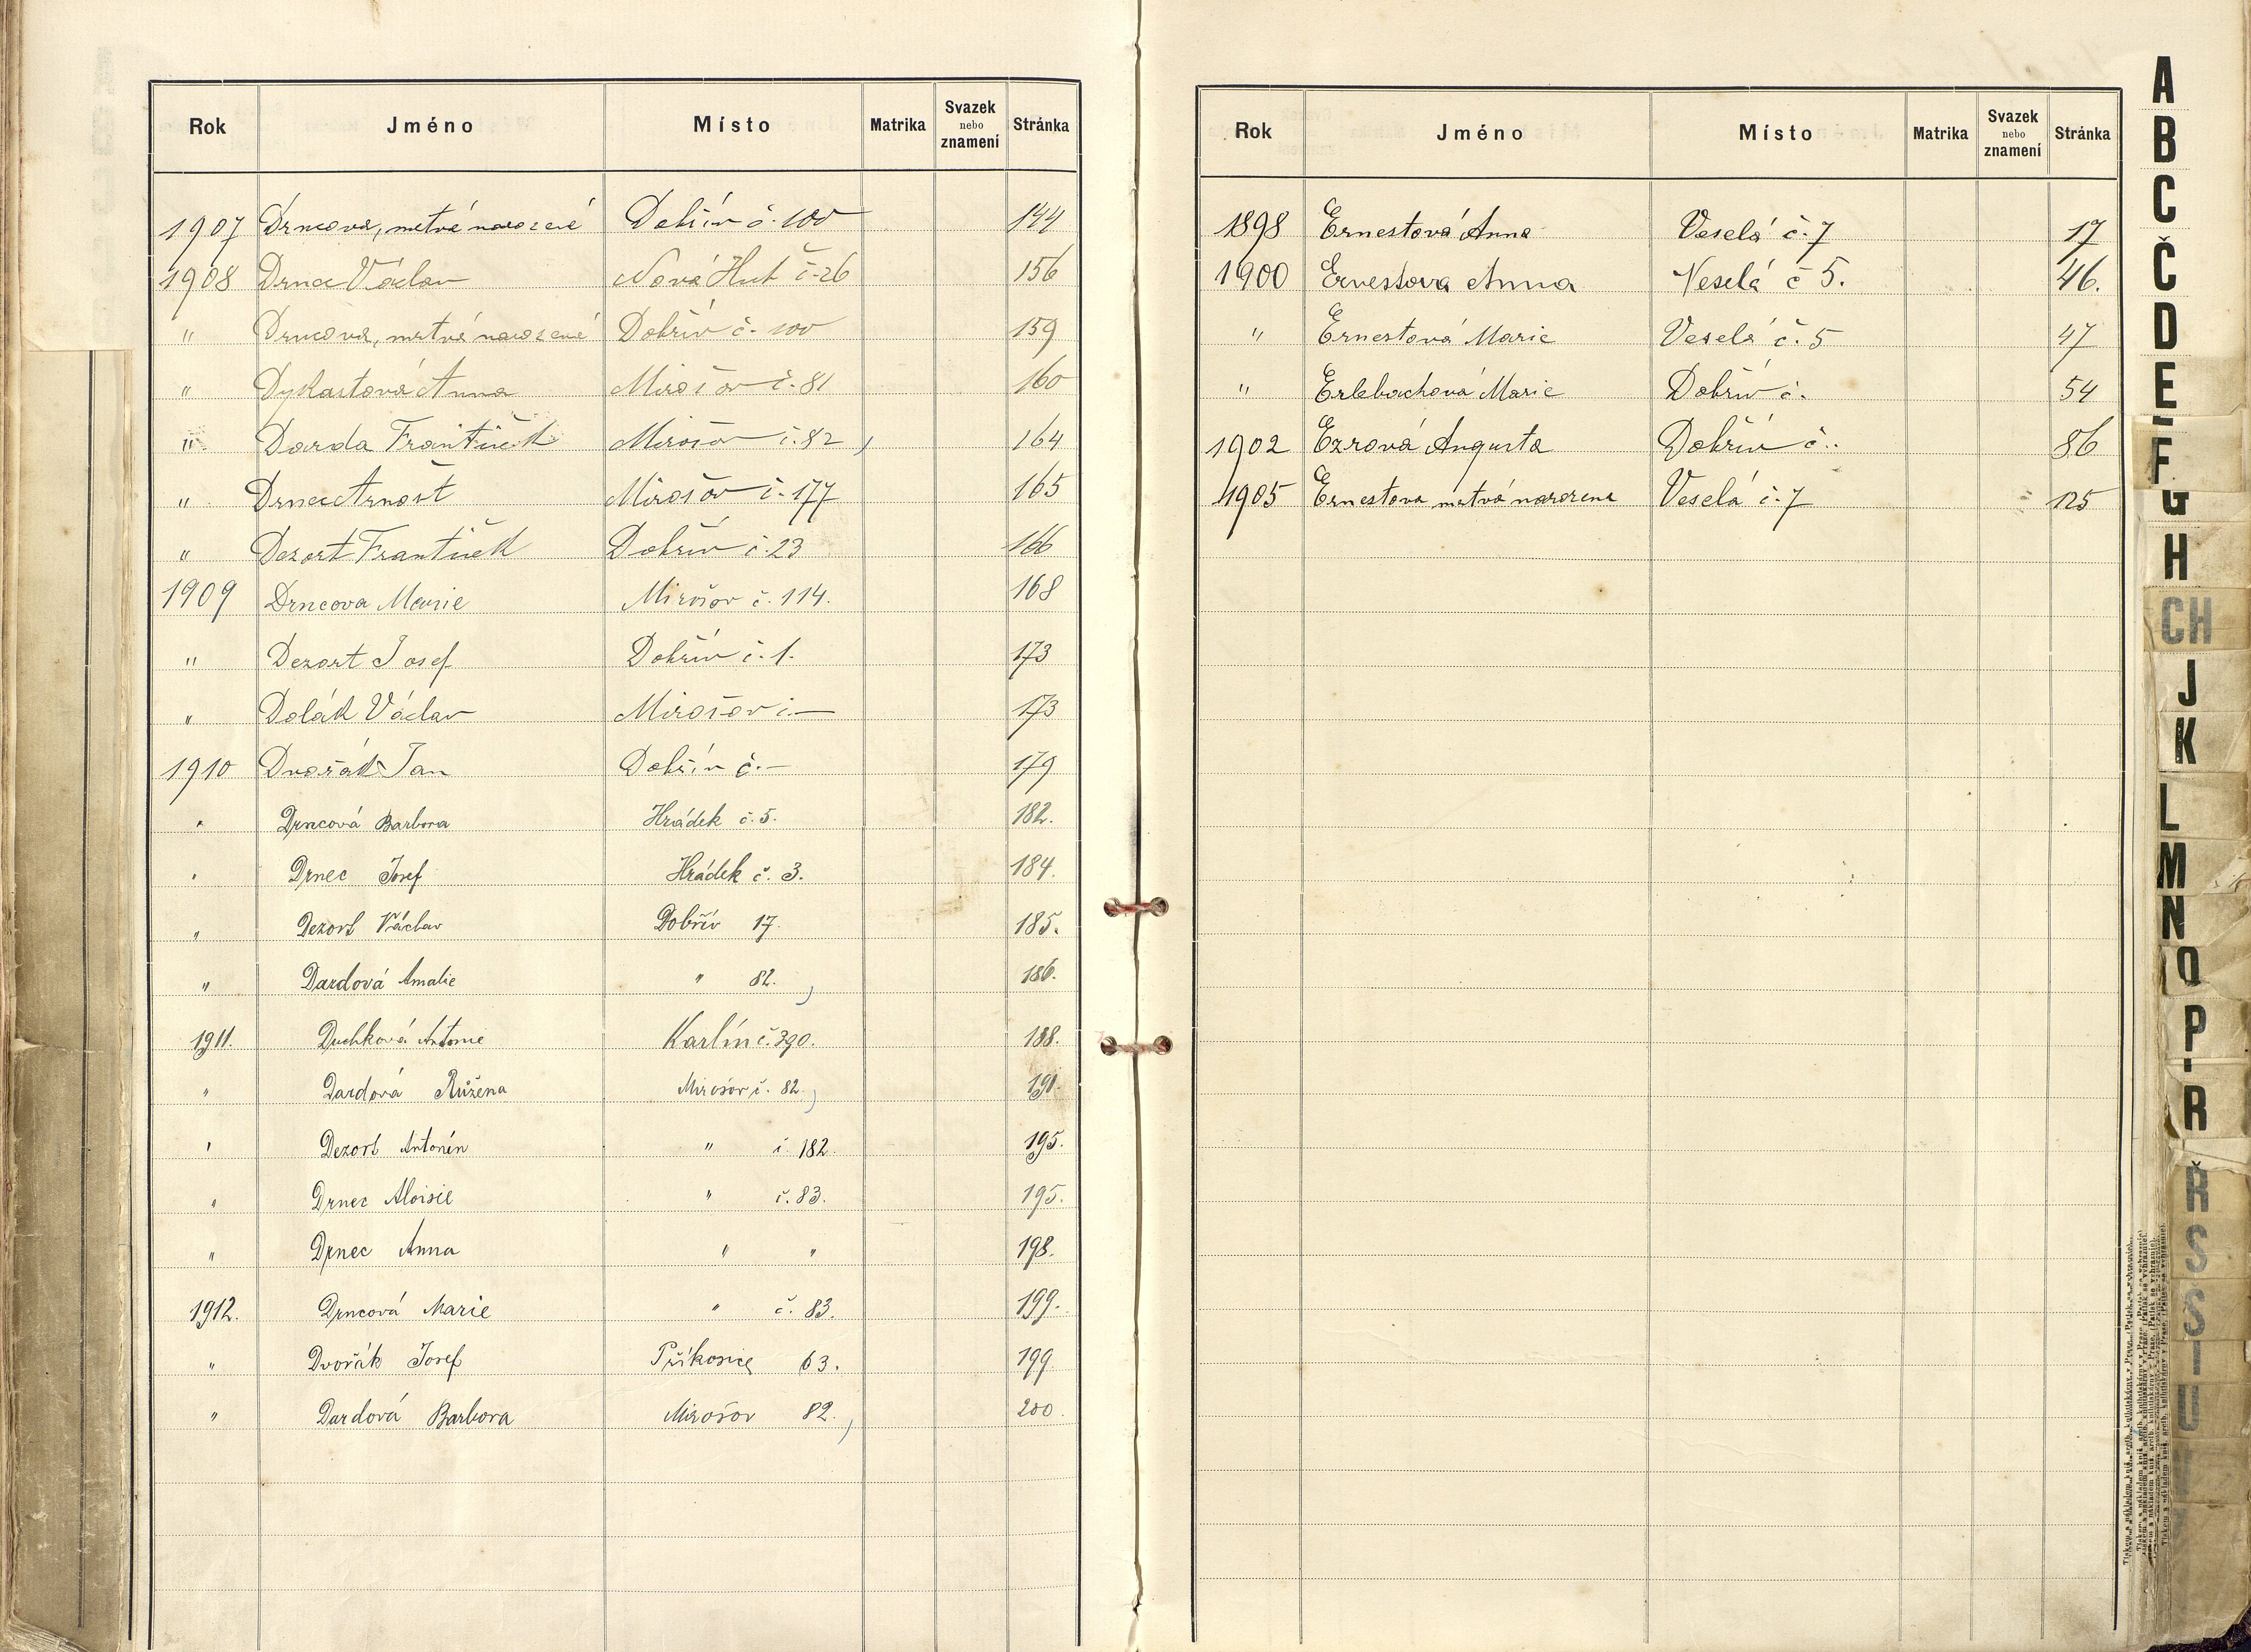 Rok Jméno Místo Matrika Svazek nebo znamení Stránka
1907 Drncova, mrtvě narozené Dobřív č. 100 144
1908 Drnec Václav Nová Huť č. 26 156
" Drncova, mrtvě narozené Dobřív č. 100 159
" Dykastová Anna Mirošov č. 81 160
" Darda František Mirošov č. 82 164
" Drnec Arnošt Mirošov č. 177 165
" Dezort František Dobřív č. 23 166
1909 Drncova Marie Mirošov č. 114. 168
" Dezort Josef Dobřív č. 1. 173
" Dolák Václav Mirošov č. — 173
1910 Dvořák Jan Dobřív č. — 179
" Drncová Barbora Hrádek č. 5. 182.
" Drnec Josef Hrádek č. 3. 184.
" Dezort Václav Dobřív 17. 185.
" Dardová Amalie " 82. 186.
1911. Duchková Antonie Karlín č. 390. 188.
" Dardová Růžena Mirošov č. 82. 191.
" Dezort Antonín " č. 182. 195.
" Drnec Aloisie " č. 83. 195.
" Drnec Anna " " 198.
1912. Drncová Marie " č. 83. 199.
" Dvořák Josef Příkosice 63. 199.
" Dardová Barbora Mirošov 82. 200.
Rok Jméno Místo Matrika Svazek nebo znamení Stránka
1898 Ernestová Anna Veselá č. 7 17
1900 Ernestova Anna Veselá č 5. 46.
" Ernestová Marie Veselá č. 5 47
" Erlebachová Marie Dobřív č. 54
1902 Ezrová Augusta Dobřív č.. 86
1905 Ernestova mrtvá narozena Veselá č. 7 125
A
B
C
Č
D
E
F
G
H
CH
J
K
L
M
N
O
P
R
Ř
S
Š
T
U